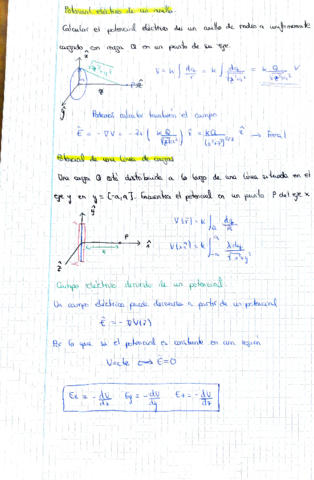 Potencial eléctrico de un anillo
Calcular el potencial eléctrico de un anillo de radio a uniformemente
cargado con carga Q en un punto de su eje.
V = k ∫ dq/r = k ∫ dq/√(z²+a²) = kQ/√(z²+a²) V
Podemos calcular también el campo
E = -∇V = -∂z (kQ/√(z²+a²)) z = kQ z/(z²+a²)^(3/2)
Potencial de una línea de cargas
Una carga Q está distribuida a lo largo de una línea situada en el
eje y en y = [-a, a]. Encuentra el potencial en un punto P del eje x
V(r) = k ∫ dq/r
V(x) = k ∫ λdy/√(x²+y²)
P
Campo eléctrico derivado de un potencial
Un campo eléctrico puede derivarse a partir de un potencial
E = -∇V(r)
Por lo que si el potencial es constante en una región
V=cte ⟺ E=0
Ex = -dV/dx Ey = -dV/dy Ez = -dV/dz